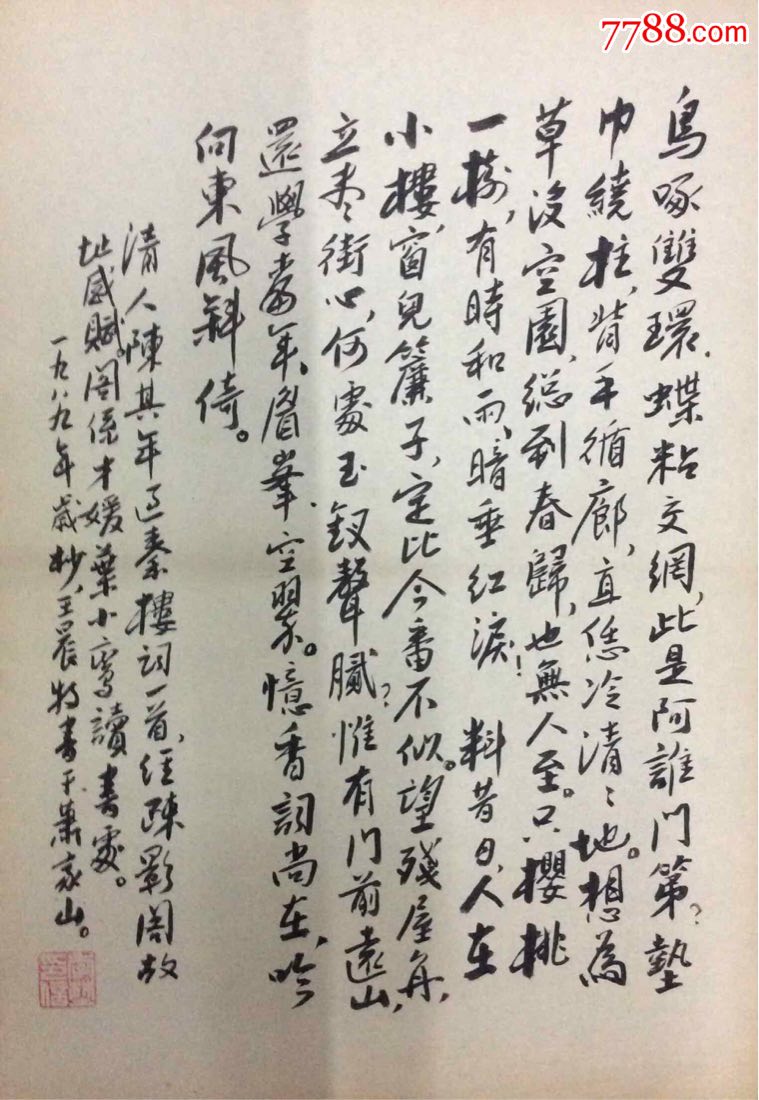 7788.com
鳥啄雙環,蝶粘文網,此是阿誰門第?墊
巾繞柱,背手循廊,直恁冷清〻地。想為
草沒空園,總到春歸,也無人至。只櫻桃
一樹,有時和雨,暗垂紅淚! 料昔日,人在
小樓,窗兒簾子,定比今番不似。望殘屋角,
立盡街心,何處玉釵聲膩?惟有門前遠山,
還學當年,眉峯空翠。憶香詞尚在,吟
向東風斜倚。
清人陳其年過秦樓詞一首,經疎影閣故
址感賦。閣係才媛葉小鸞讀書處。
一九八九年歲杪,王晨牧書于